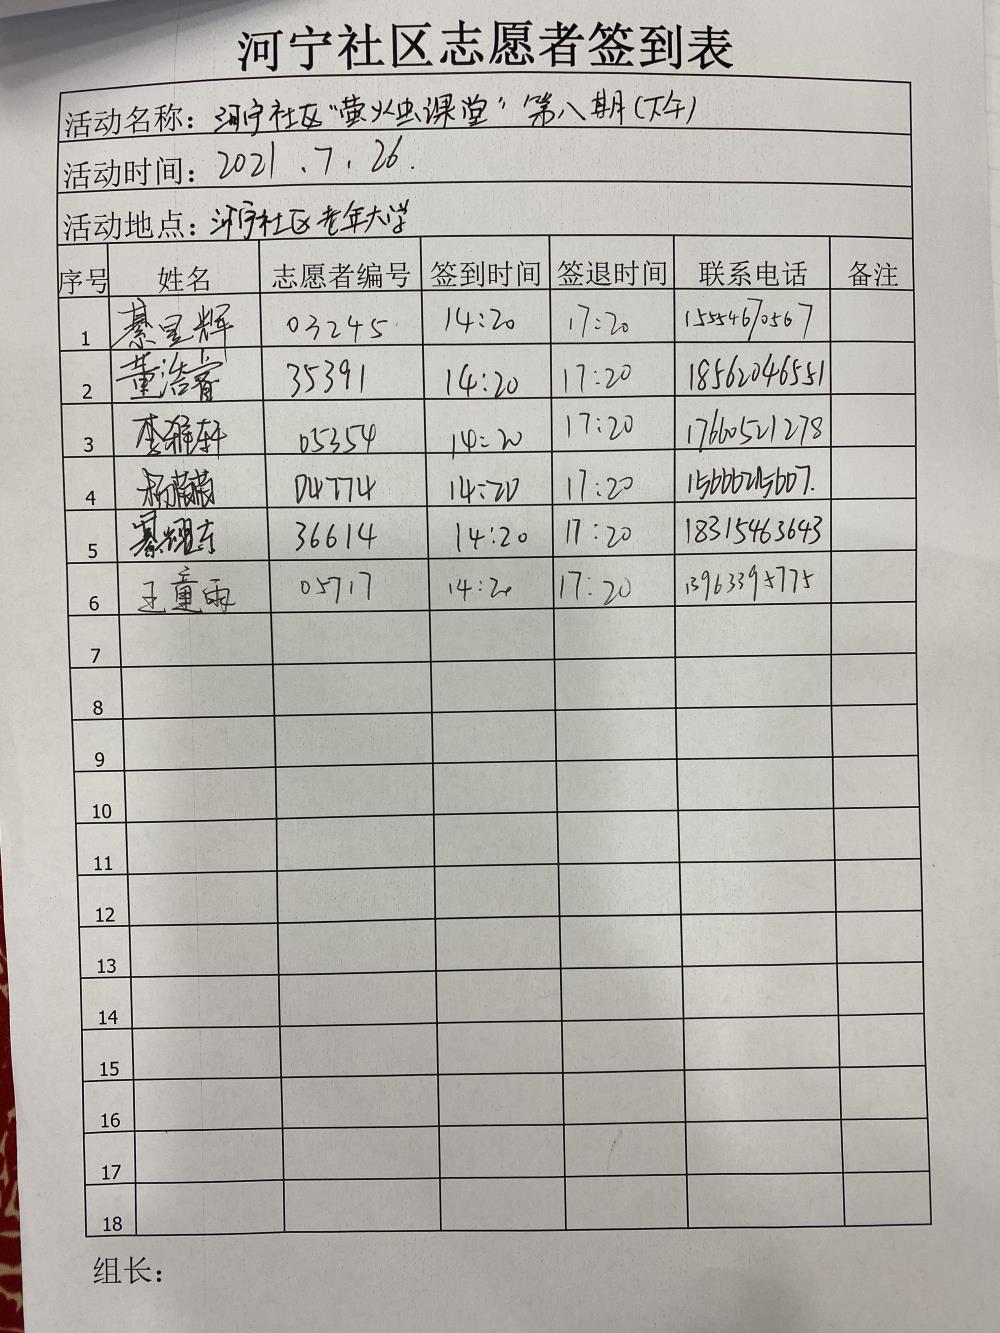 河宁社区志愿者签到表
活动名称：河宁社区“萤火虫课堂”第八期(下午)
活动时间：2021.7.26.
活动地点：河宁社区老年大学
序号 姓名 志愿者编号 签到时间 签退时间 联系电话 备注
1 綦星辉 03245 14:20 17:20 15554670567
2 董浩睿 35391 14:20 17:20 18562046551
3 李雅轩 05354 14:20 17:20 17660521278
4 杨蒲蒲 04774 14:20 17:20
5 綦耀东 36614 14:20 17:20 18315463643
6 王童雨 05717 14:20 17:20 13963395775
7
8
9
10
11
12
13
14
15
16
17
18
组长：